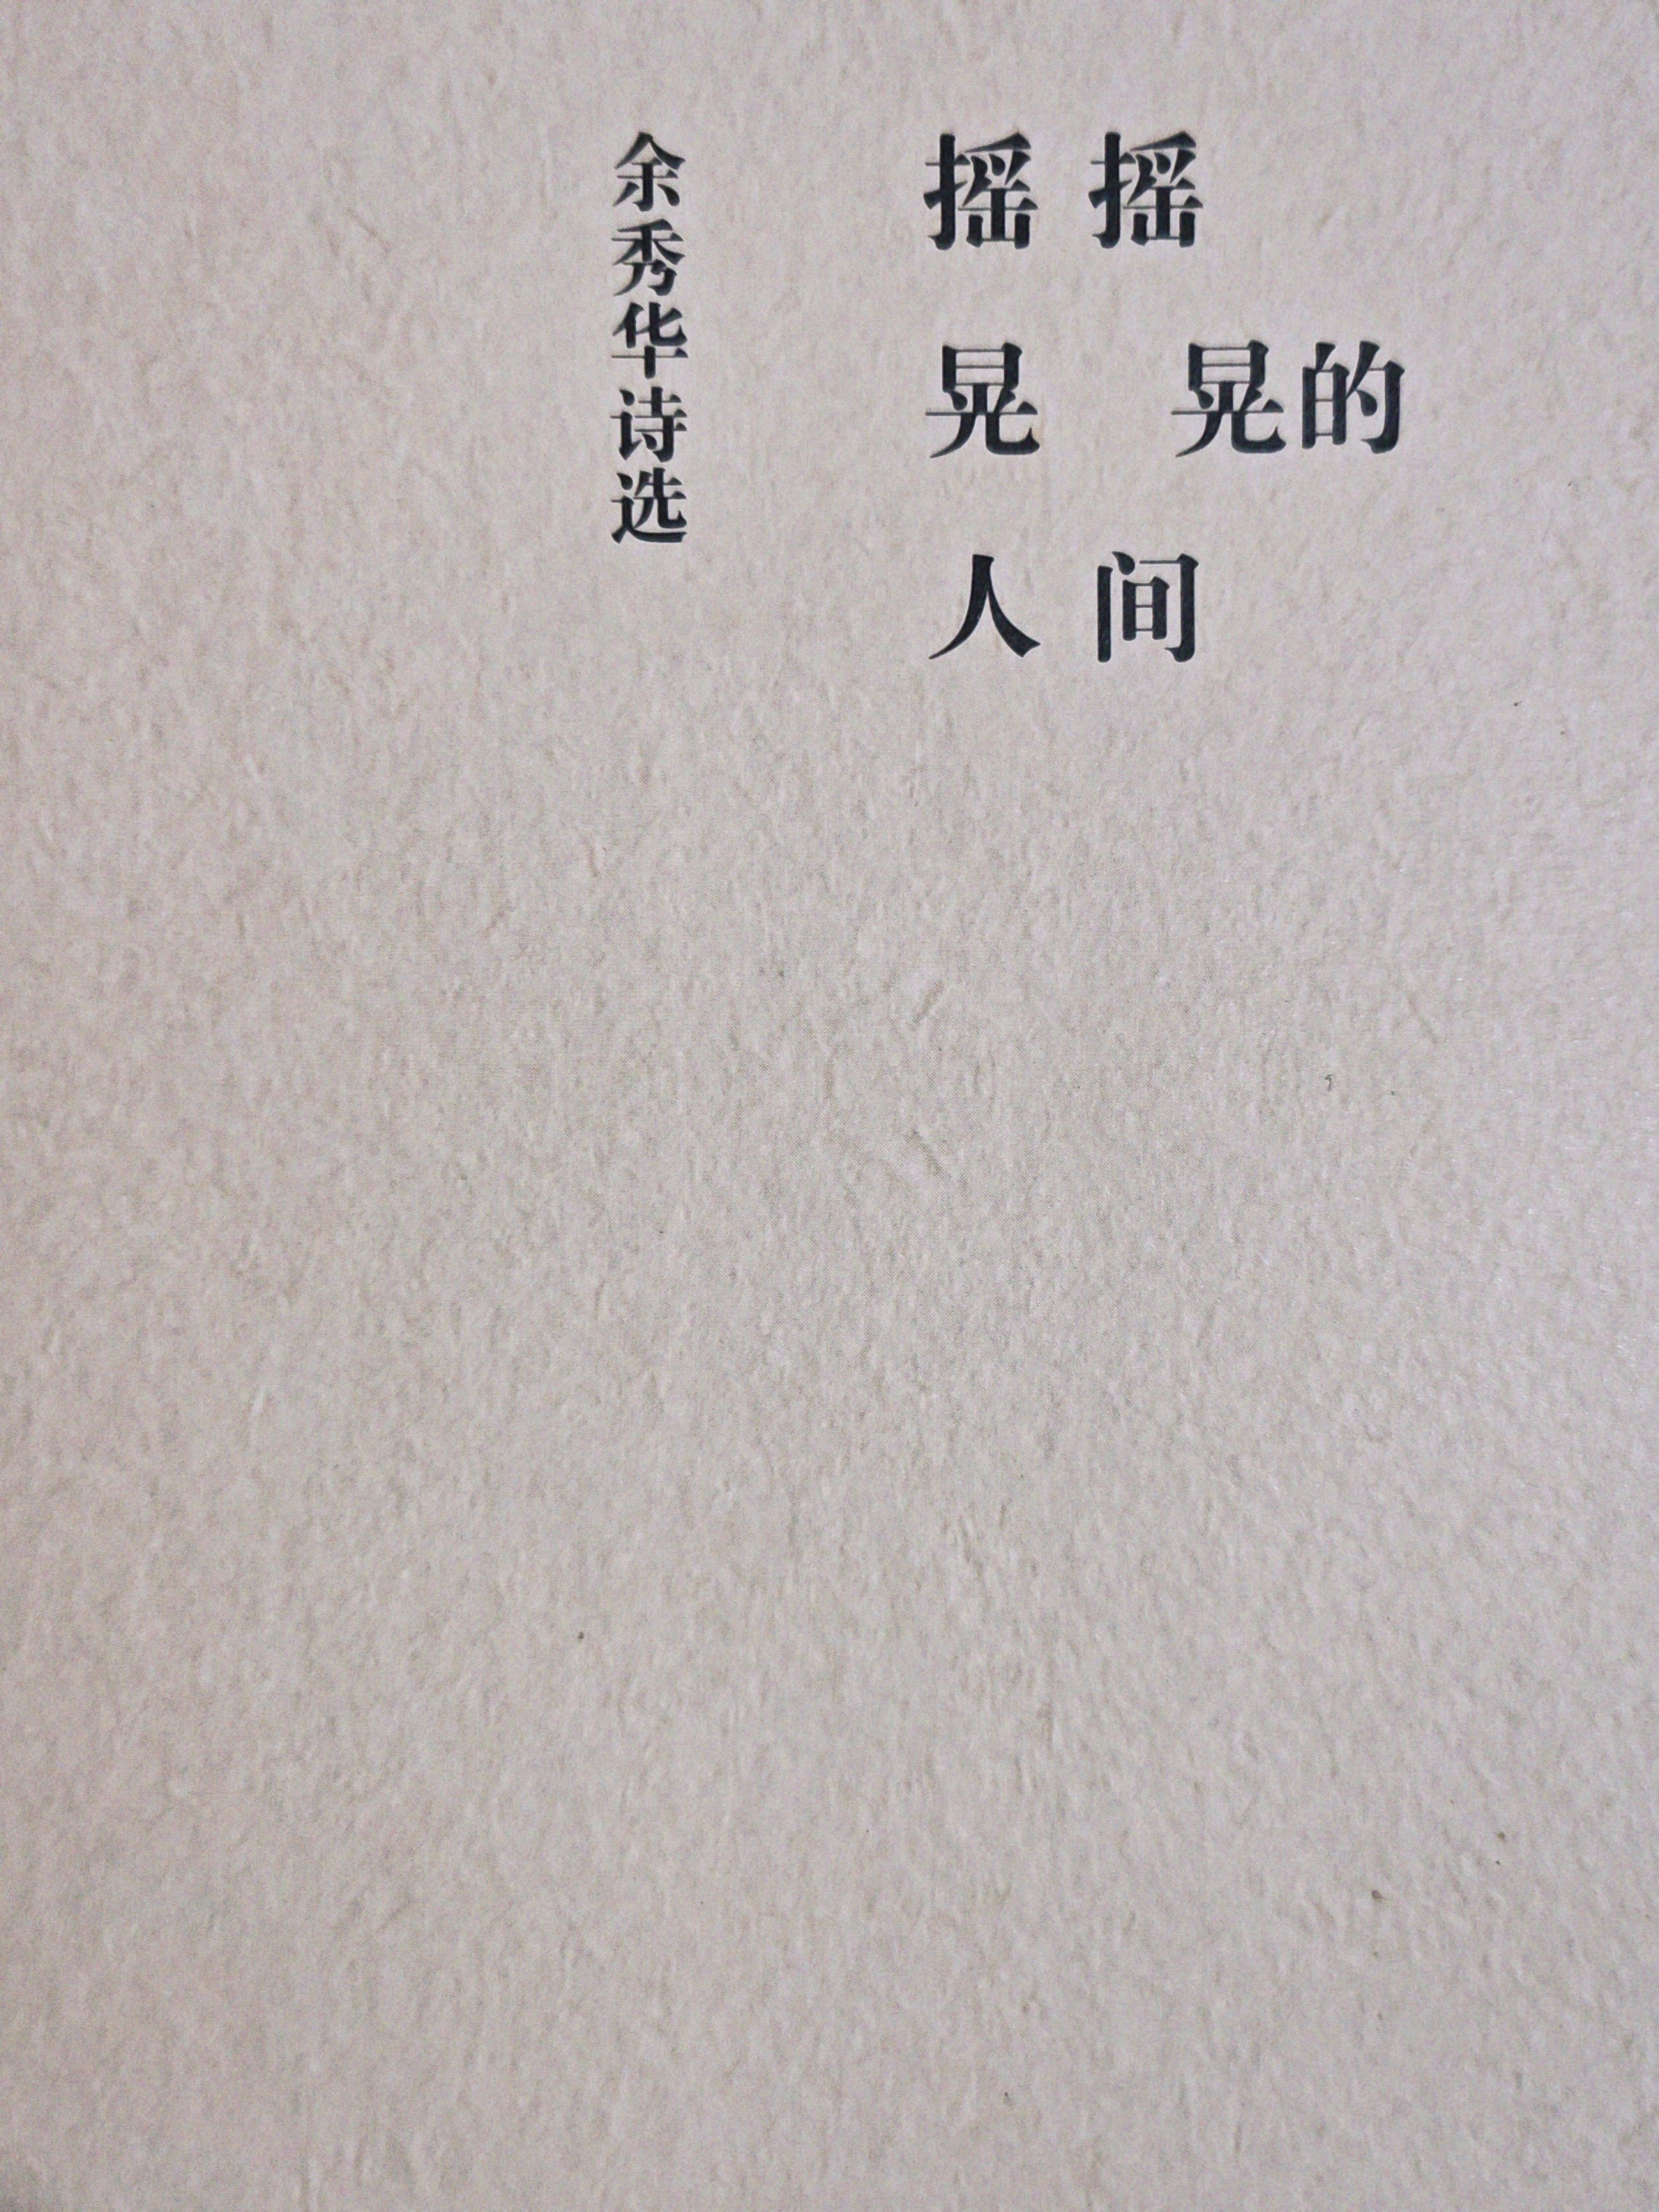 摇摇
晃晃的
人间
余秀华诗选